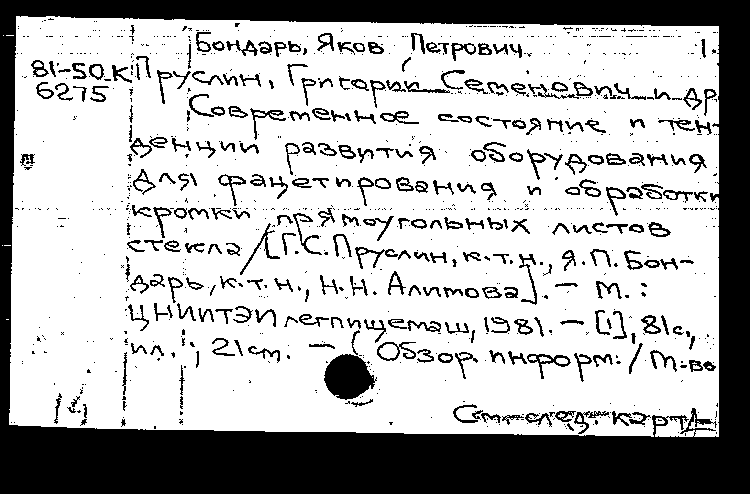 Бондарь, Яков Петрович 1.
81-50.К Пруслин, Григорий Семенович и др
6275 Современное состояние и тен-
денции развития оборудования
для фацетирования и обработки
кромки прямоугольных листов
стекла / [Г.С.Пруслин, к.т.н., Я.П. Бон-
дарь, к.т.н., Н.Н. Алимова]. — М. :
ЦНИИТЭИлегпищемаш, 1981. — [1], 81с.,
ил. ; 21см. — (Обзор. информ. / М-во
См. след. карт.